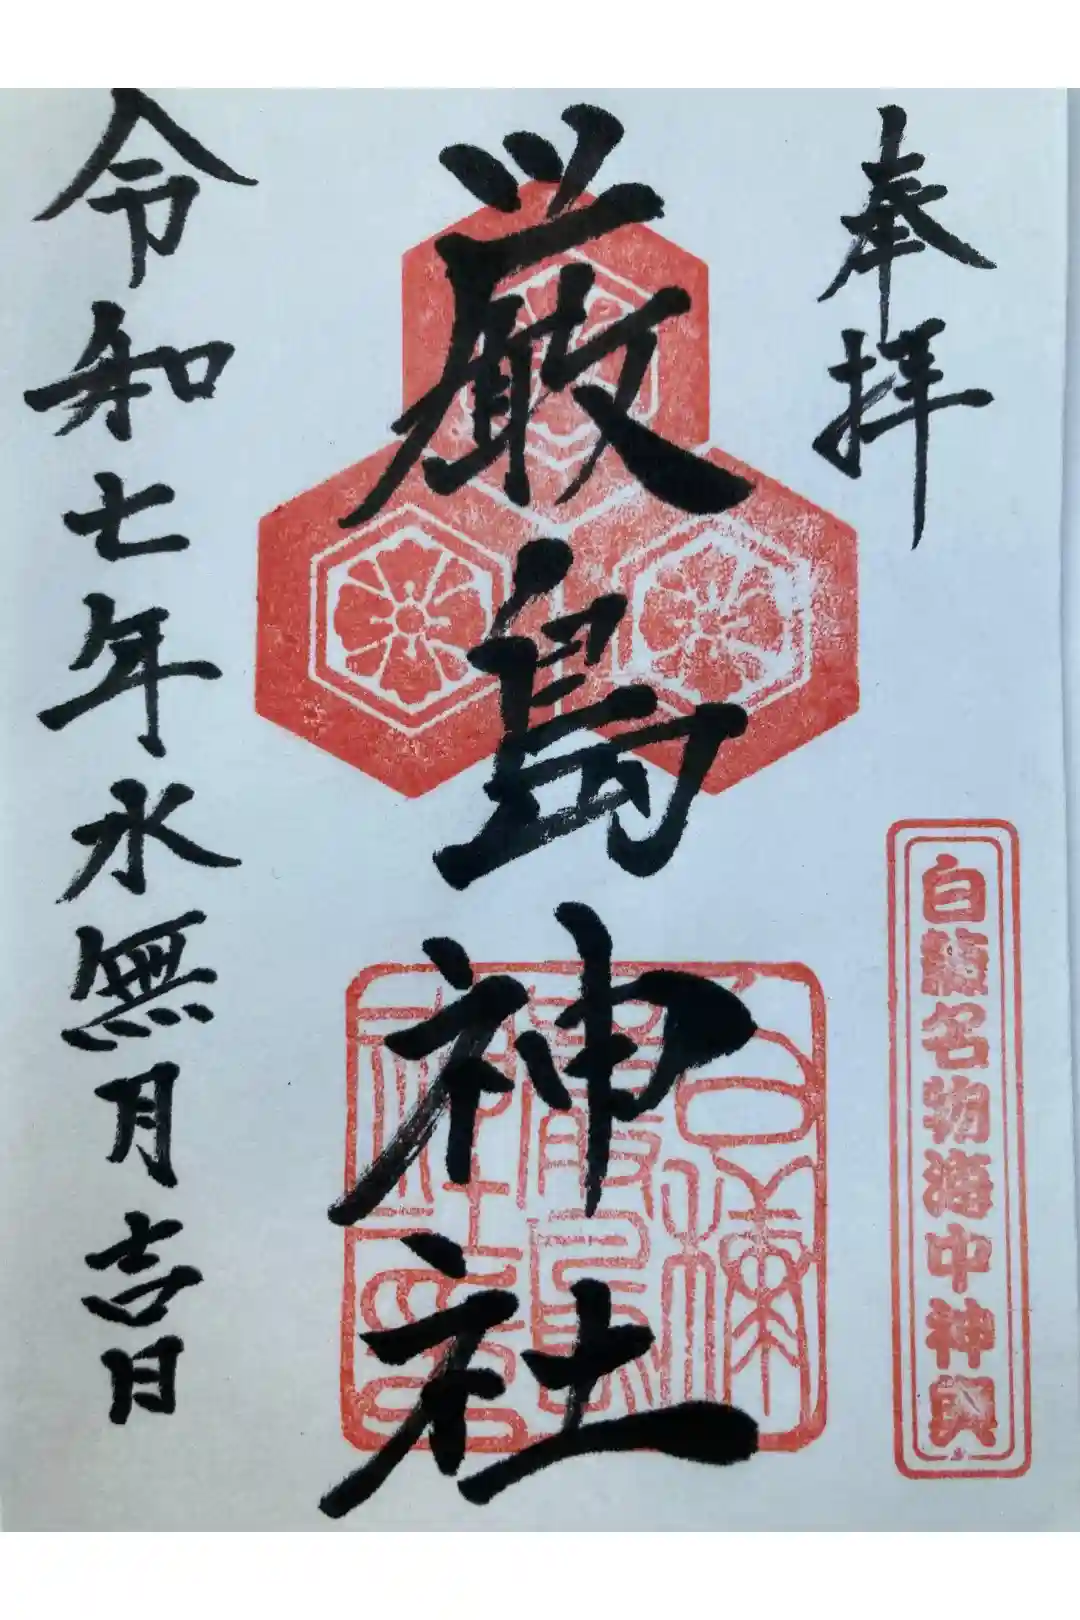 奉拝
白籏名物海中神輿
厳島神社
令和七年水無月吉日